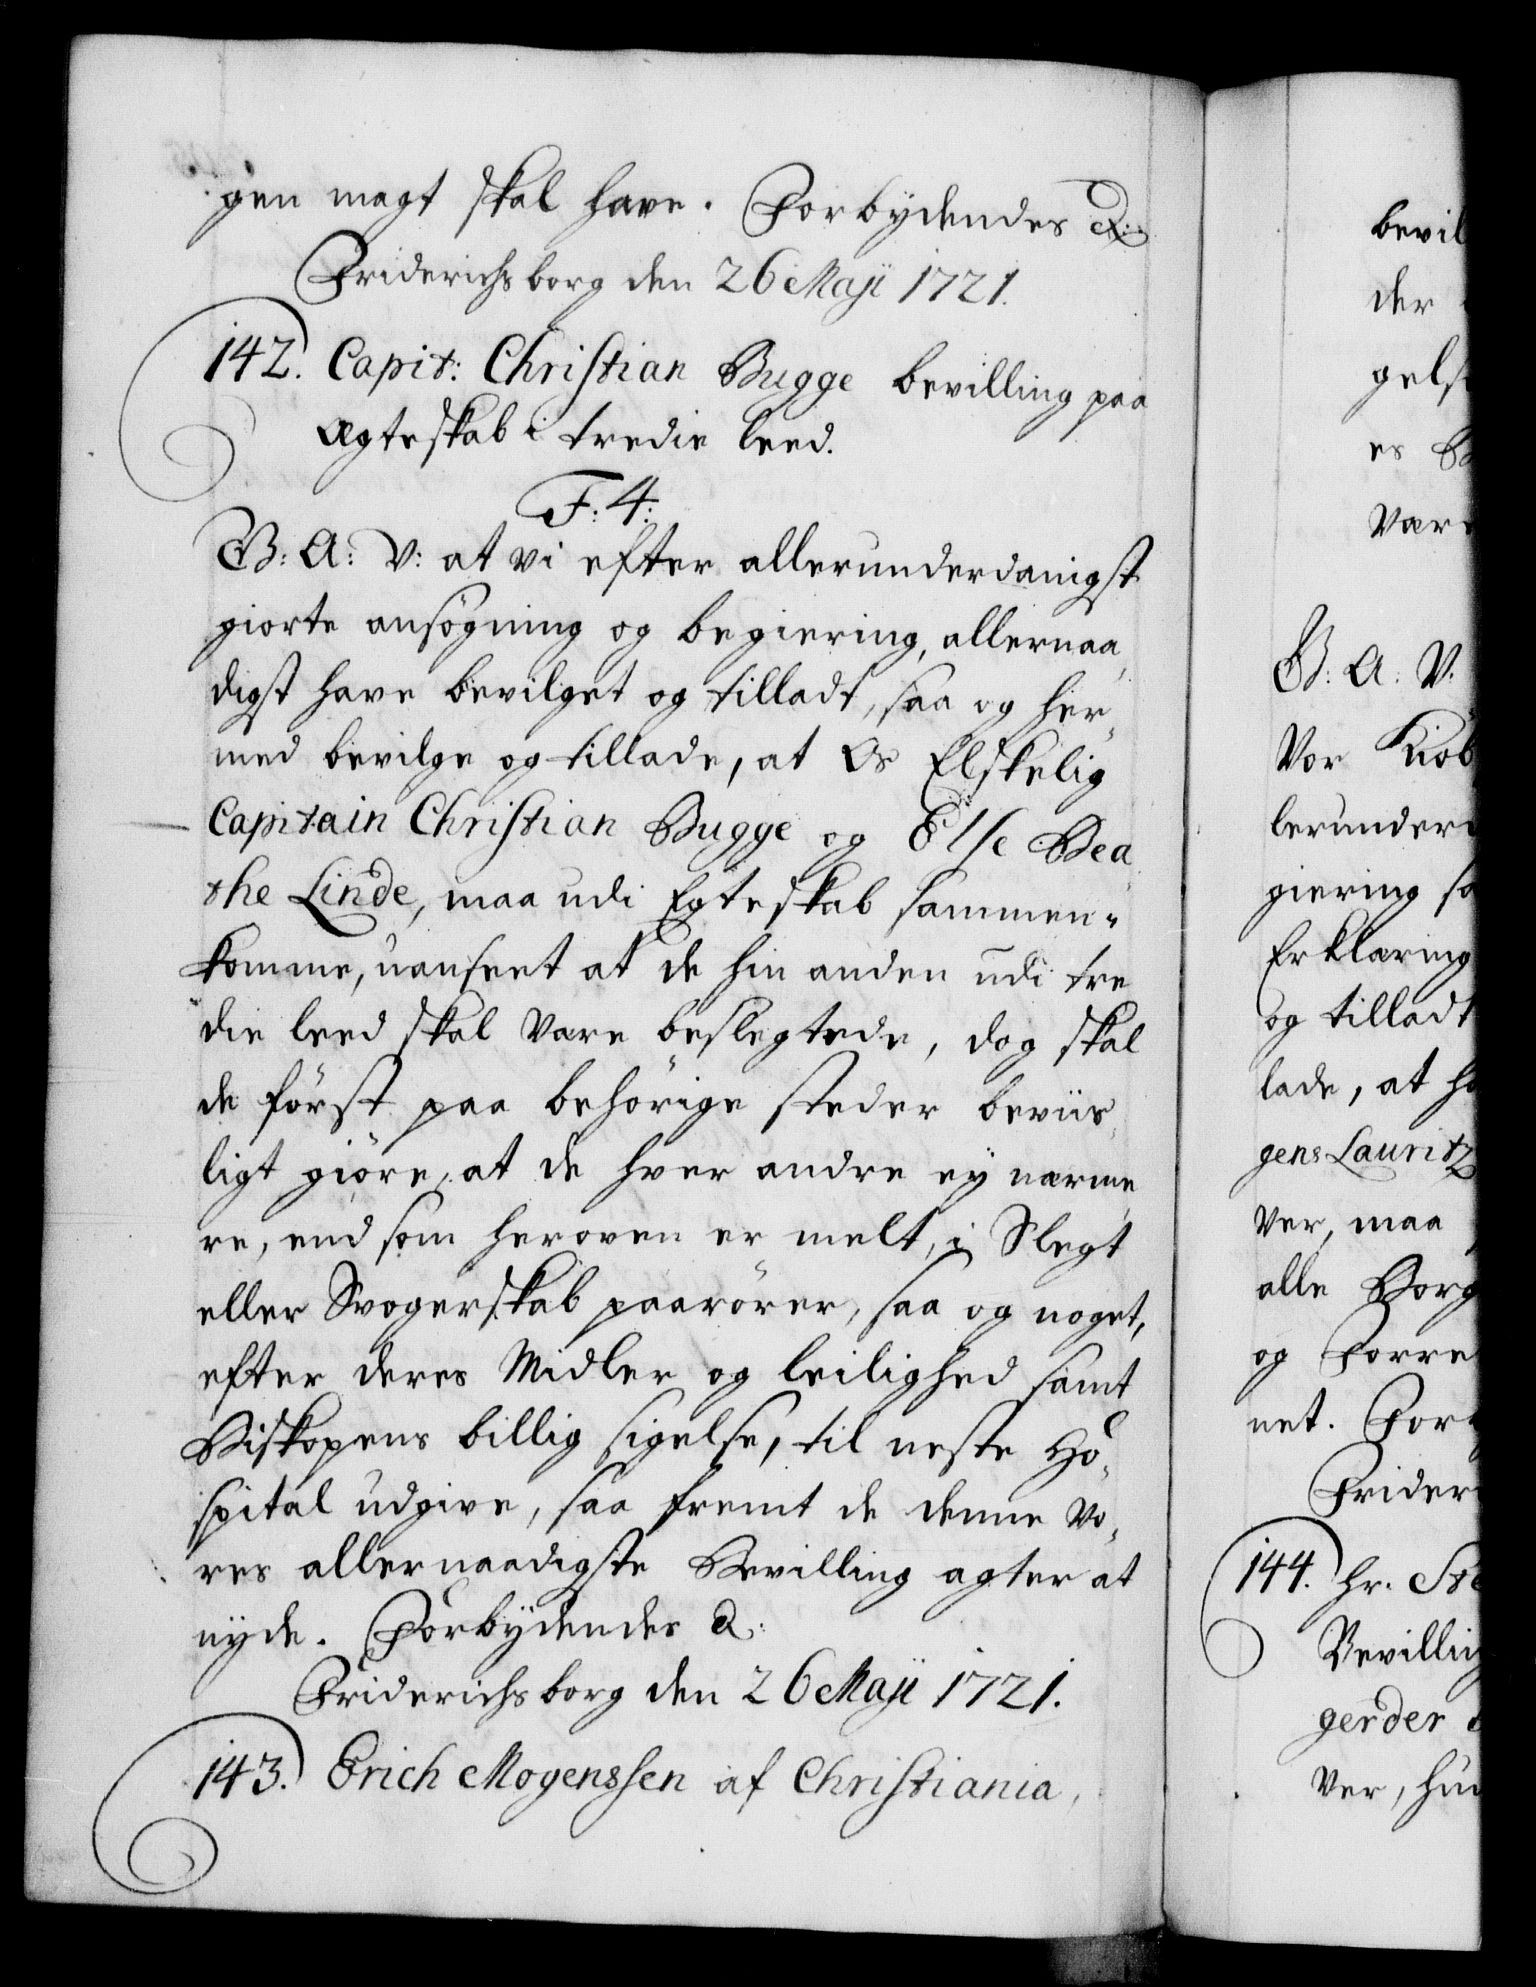 gen magt skal have. Forbydendes &:
Friderichsborg den 26 Maji 1721.
142. Capit: Christian Bugge bevilling paa
Ægteskab i tredie leed.
F: 4:
G: A: V: at vi efter allerunderdanigst
giorte ansögning og begiering, allernaa„
digst have bevilget og tilladt, saa og her„
med bevilge og tillade, at Os Elskelig
Capitain Christian Bugge og Else Bea„
the Linde, maa udi Egteskab sammen„
komme, uanseet at de hin anden udi tre„
die leed skal være beslegtede, dog skal
de först paa behörige steder beviis„
ligt giöre, at de hver andre ey nærme„
re, end som heroven er melt, i Slegt
eller Svogerskab paarörer, saa og noget,
efter deres Midler og leilighed samt
Biskopens billig sigelse, til neste Ho„
spital udgive, saa fremt de denne Vo„
res allernaadigste Bevilling agter at
nyde. Forbydendes &:
Friderichsborg den 26 Maji 1721.
143. Erich Mogenssen af Christiania,
bevil
der
gels
es
Vær
G: A: V:
Vor Kiöb
lerunder
giering sa
Erklæring
og tilladt
lade, at h
gens Lauritz
ver, maa
alle Borg
og Forre
net. For
Frider
144. Hr. Ste
Bevilling
gerder
ver, hu